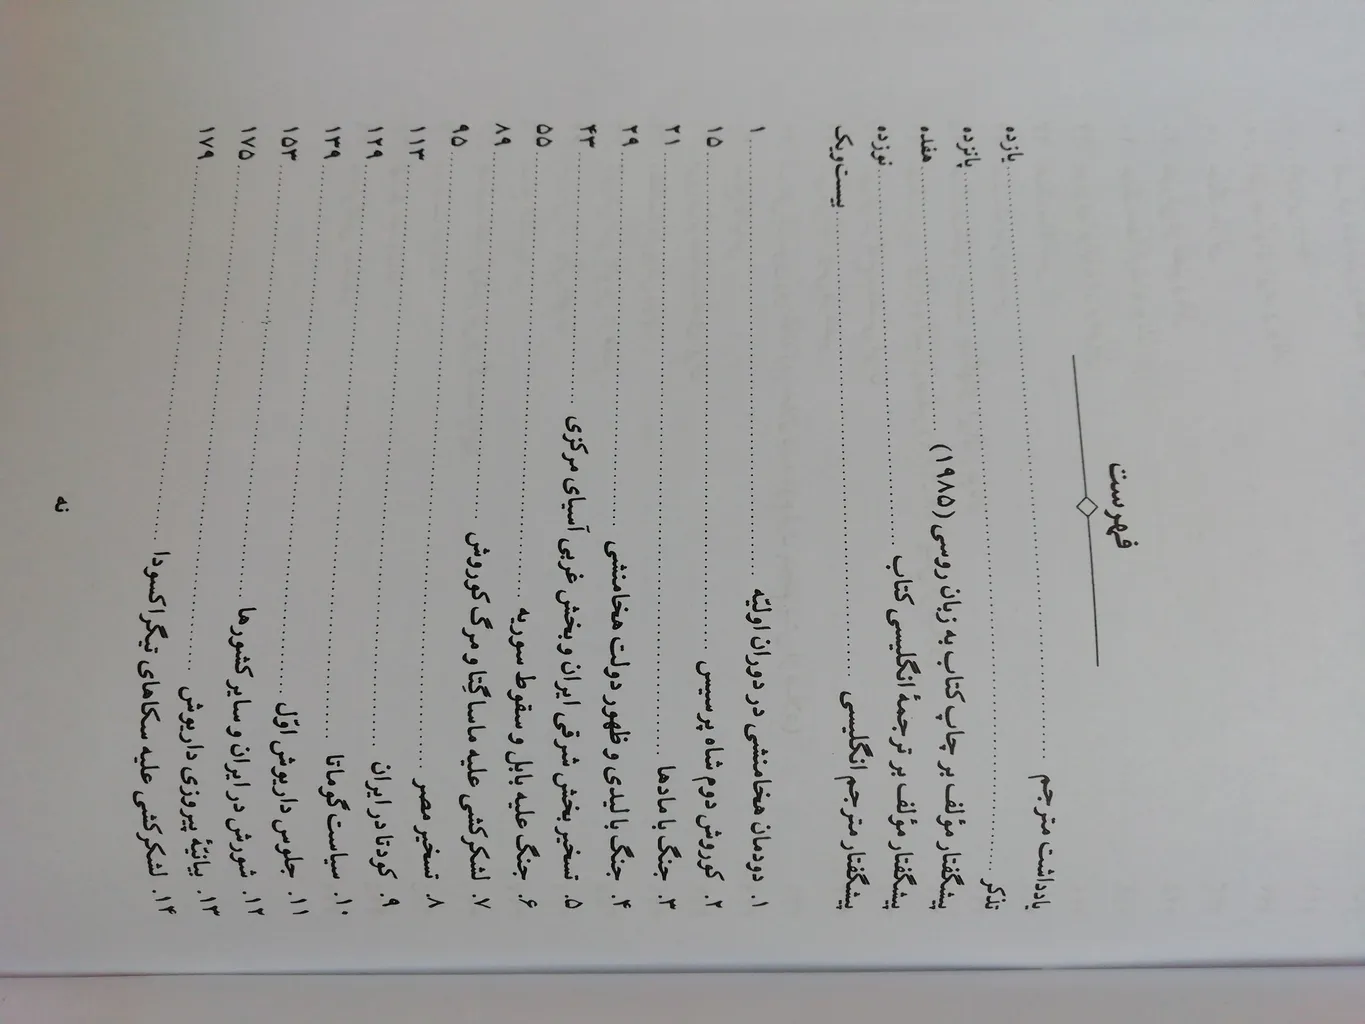 فهرست
یادداشت مترجم ........ یازده
تذکر ........ پانزده
پیشگفتار مؤلف بر چاپ کتاب به زبان روسی (۱۹۸۵) ........ هفده
پیشگفتار مؤلف بر ترجمهٔ انگلیسی کتاب ........ نوزده
پیشگفتار مترجم انگلیسی ........ بیست‌ویک
۱. دودمان هخامنشی در دوران اولیّه ........ ۱
۲. کوروش دوم شاه پرسیس ........ ۱۵
۳. جنگ با مادها ........ ۲۱
۴. جنگ با لیدی و ظهور دولت هخامنشی ........ ۲۹
۵. تسخیر بخش شرقی ایران و بخش غربی آسیای مرکزی ........ ۴۳
۶. جنگ علیه بابل و سقوط سوریه ........ ۵۵
۷. لشکرکشی علیه ماساگِتا و مرگ کوروش ........ ۸۹
۸. تسخیر مصر ........ ۹۵
۹. کودتا در ایران ........ ۱۱۳
۱۰. سیاست گوماتا ........ ۱۲۹
۱۱. جلوس داریوش اوّل ........ ۱۳۹
۱۲. شورش در ایران و سایر کشورها ........ ۱۵۳
۱۳. بیانیّهٔ پیروزی داریوش ........ ۱۷۵
۱۴. لشکرکشی علیه سکاهای تیگراکسودا ........ ۱۷۹
نه